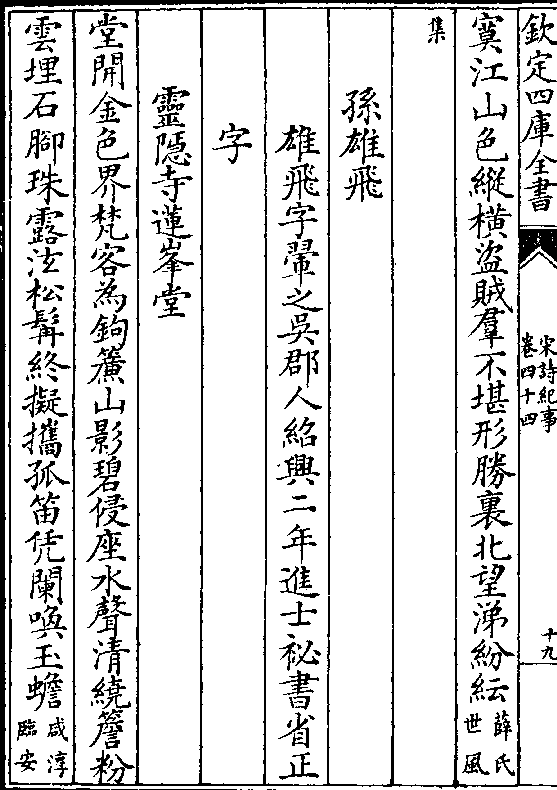 欽定四庫全書
宋詩紀事
卷四十四
十九
寞江山色縱橫盜賊羣不堪形勝裏北望涕紛紜薛氏世風
集
孫雄飛
雄飛字翬之吳郡人紹興二年進士祕書省正
字
靈隱寺蓮峯堂
堂開金色界梵客為鉤簾山影碧侵座水聲清繞簷粉
雲埋石腳珠露泫松髯終擬攜孤笛凭闌喚玉蟾咸淳臨安